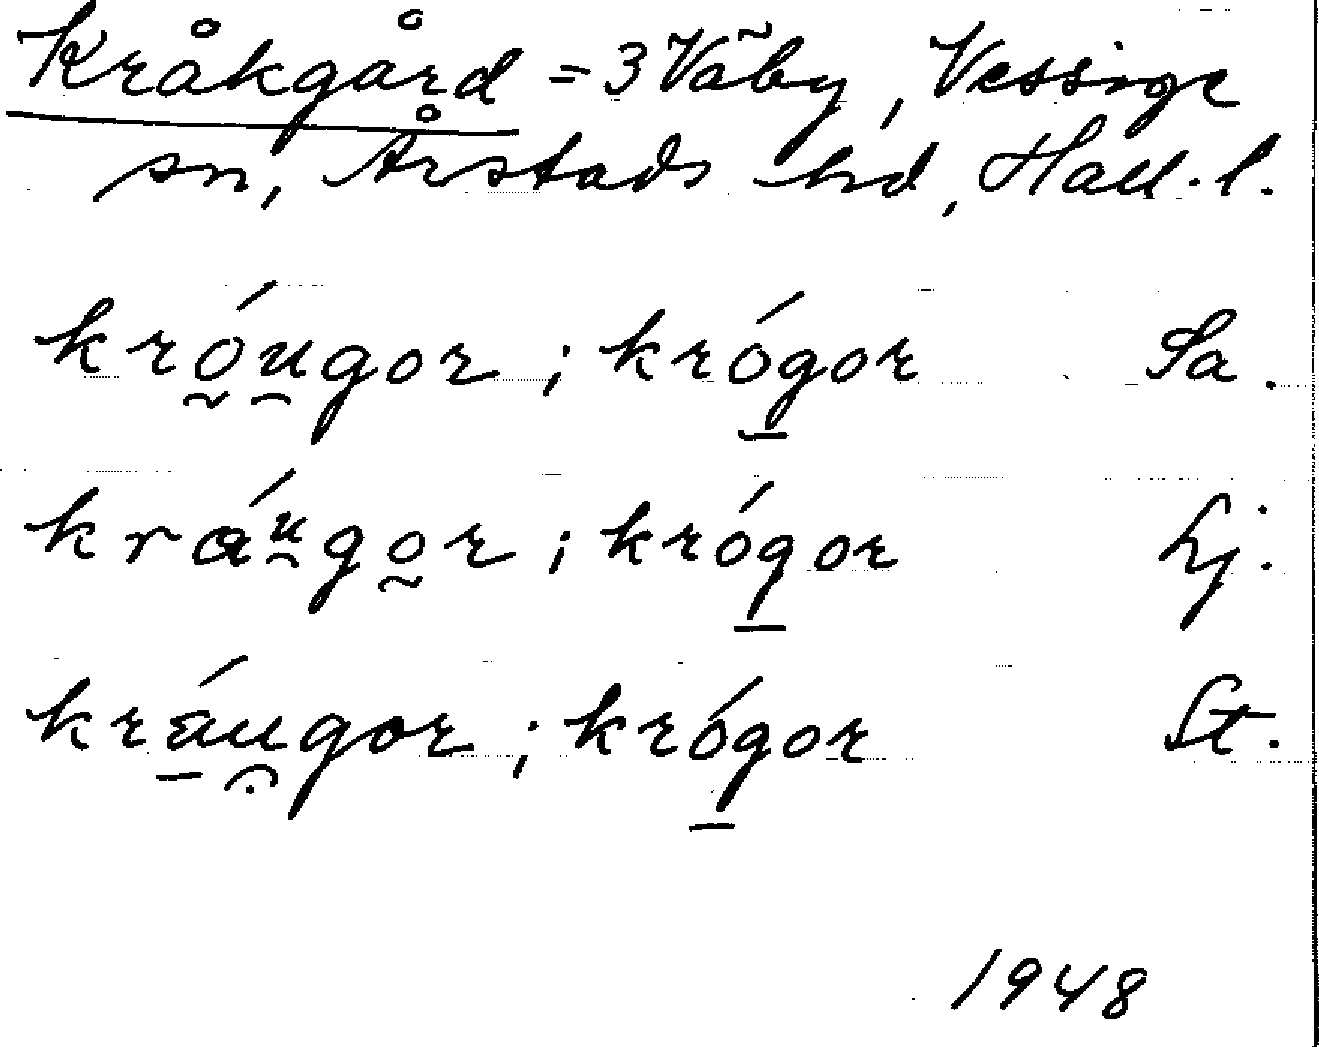 Kråkgård = 3 Väby, Vessige
sn, Årstads hd, Hall. l.
króu̯gor ; krógor Sa.
kráu̯gor ; krógor Lj.
kráu̯gor ; krógor St.
1948